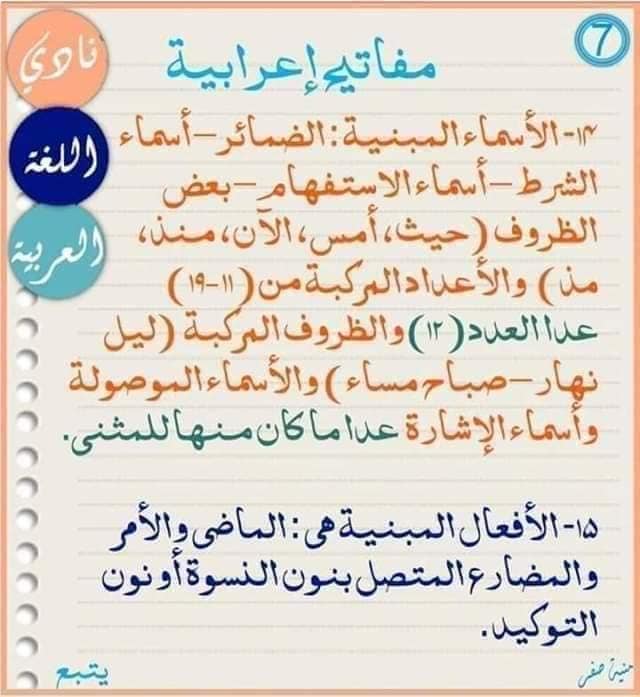 7
مفاتيح إعرابية
نادي
اللغة
العربية
١٤- الأسماء المبنية: الضمائر – أسماء
الشرط – أسماء الاستفهام – بعض
الظروف (حيث، أمس، الآن، منذ،
مذ) والأعداد المركبة من (١١-١٩)
عدا العدد (١٢) والظروف المركبة (ليل
نهار – صباح مساء) والأسماء الموصولة
وأسماء الإشارة عدا ما كان منها للمثنى.
١٥- الأفعال المبنية هى: الماضى والأمر
والمضارع المتصل بنون النسوة أو نون
التوكيد.
منية صفر
يتبع